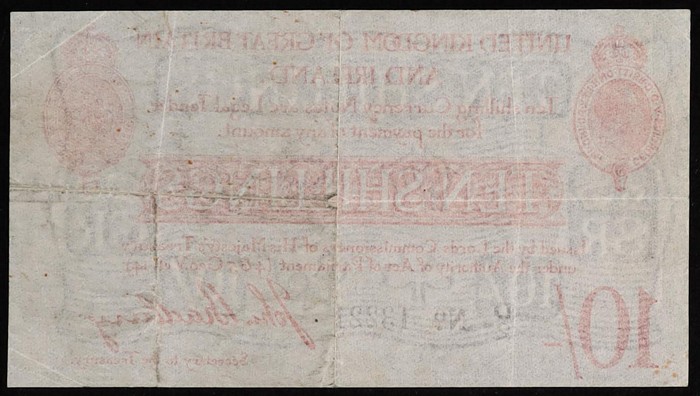 UNITED KINGDOM OF GREAT BRITAIN
AND IRELAND
Ten Shilling Currency Notes are Legal Tender
for the payment of any amount.
TEN SHILLINGS
Issued by the Lords Commissioners of His Majesty's Treasury
under the Authority of Act of Parliament (4 & 5 Geo. V. ch. 14)
John Bradbury
No
Secretary to the Treasury.
10/-